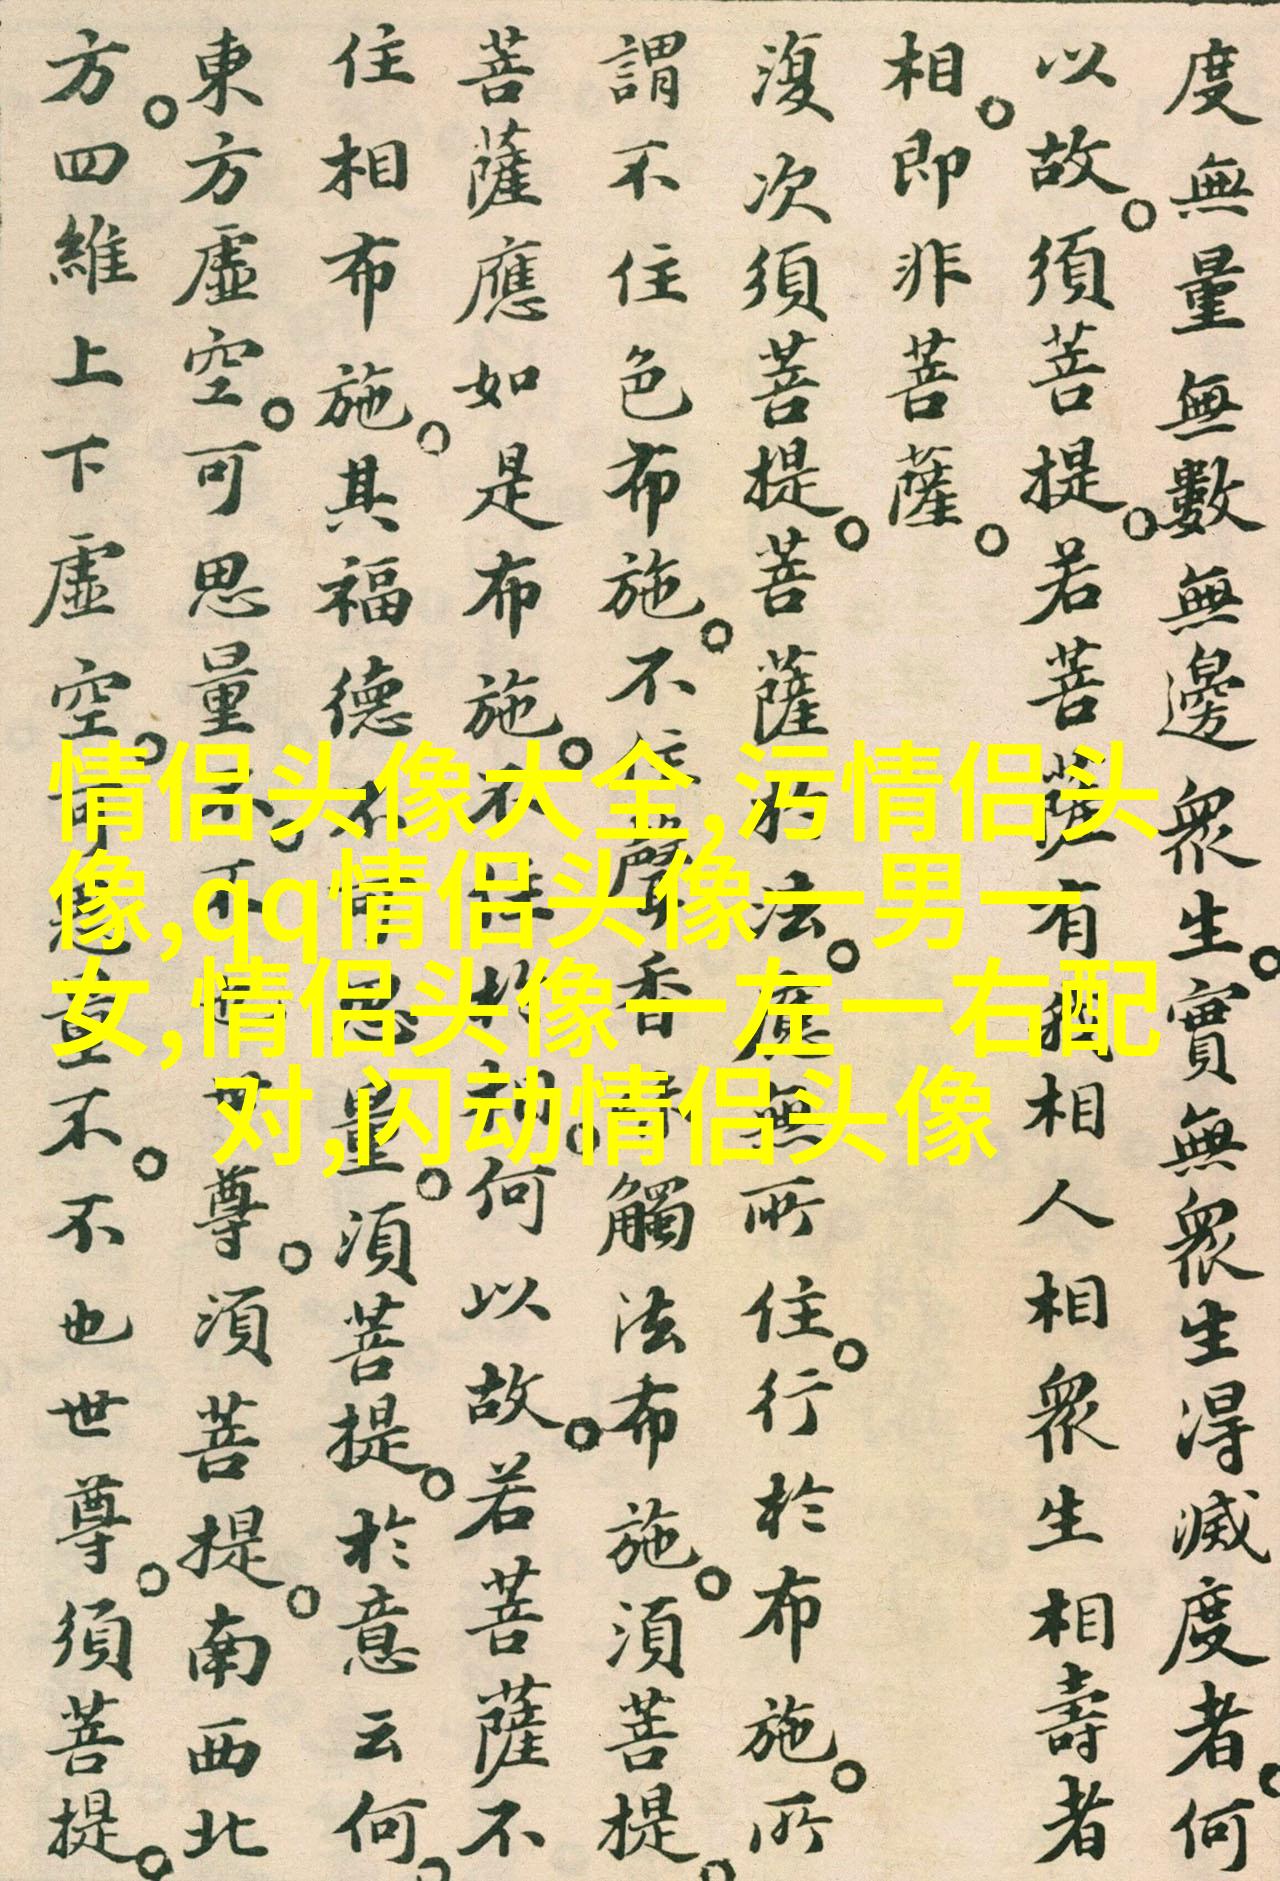 度無量無數無邊眾生。實無眾生得滅度者。何
以故。須菩提。若菩薩有我相人相眾生相壽者
相。即非菩薩。
復次須菩提。菩薩於法。應無所住。行於布施。所
謂不住色布施。不住聲香味觸法布施。須菩提。
菩薩應如是布施。不住於相。何以故。若菩薩不
住相布施。其福德不可思量。須菩提。於意云何。
東方虛空。可思量不。不也世尊。須菩提。南西北
方。四維上下虛空。可思量不。不也世尊。須菩提。
情侣头像大全,污情侣头
像,qq情侣头像一男一
女,情侣头像一左一右配
对,闪动情侣头像